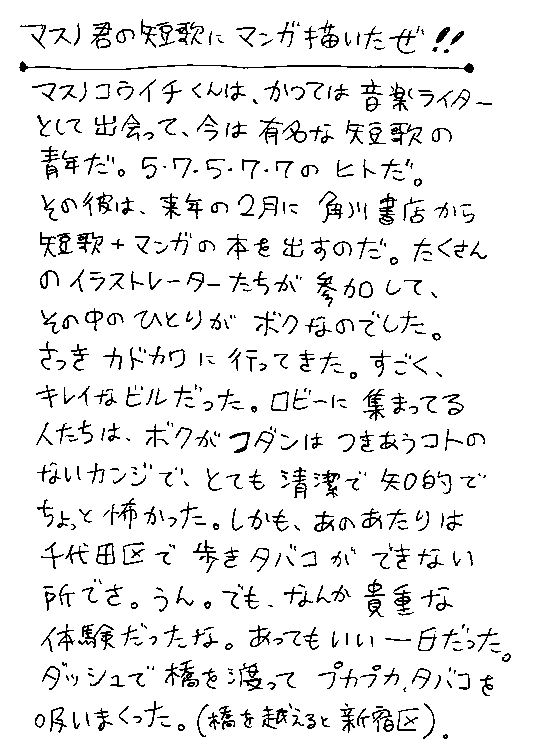 マスノ君の短歌にマンガ描いたぜ!!
マスノコウイチくんは、かつては音楽ライター
として出会って、今は有名な短歌の
青年だ。5・7・5・7・7のヒトだ。
その彼は、来年の2月に角川書店から
短歌+マンガの本を出すのだ。たくさん
のイラストレーターたちが参加して、
その中のひとりがボクなのでした。
さっきカドカワに行ってきた。すごく、
キレイなビルだった。ロビーに集まってる
人たちは、ボクがフダンはつきあうコトの
ないカンジで、とても清潔で知的で
ちょっと怖かった。しかも、あのあたりは
千代田区で歩きタバコができない
所でさ。うん。でも、なんか貴重な
体験だったな。あってもいい一日だった。
ダッシュで橋を渡ってプカプカ、タバコを
吸いまくった。(橋を越えると新宿区).